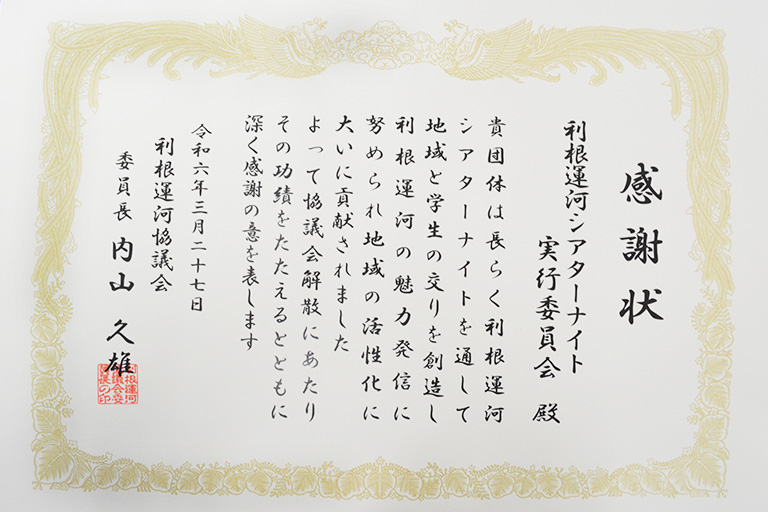 感謝状
利根運河シアターナイト
実行委員会 殿
貴団体は長らく利根運河
シアターナイトを通して
地域と学生の交りを創造し
利根運河の魅力発信に
努められ地域の活性化に
大いに貢献されました
よって協議会解散にあたり
その功績をたたえるとともに
深く感謝の意を表します
令和六年三月二十七日
利根運河協議会
委員長 内山 久雄
利根運河
協議会委
員長の印